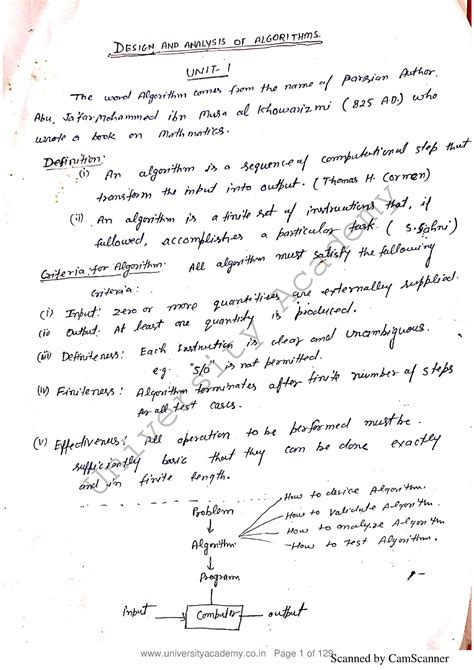 DESIGN AND ANALYSIS OF ALGORITHMS.
UNIT-1
The word Algorithm comes from the name of Parsian Author.
Abu, Ja'far Mohammed ibn Musa al Khowarizmi (825 A.D.) who
wrote a book on Mathmatics.
Definition:
(i) An algorithm is a sequence of computational step that
transform the input into output. (Thomas H. Cormen)
(ii) An algorithm is a finite set of instructions that, if
followed, accomplishes a particular task. (S. Sahni)
Criteria for Algorithm: All algorithm must satisfy the following
Criteria:
(i) Input: zero or more quantities are externally supplied.
(ii) Output: At least one quantity is produced.
(iii) Definiteness: Each Instruction is clear and Unambiguous.
e.g. "5/0" is not permitted.
(iv) Finiteness: Algorithm terminates after finite number of steps
for all test cases.
(v) Effectiveness: All operation to be performed must be
sufficiently basic that they can be done exactly
and in finite length.
Problem
Algorithm
How to device Algorithm.
How to Validate Algorithm.
How to analyze Algorithm
How to Test Algorithm.
Program
input Computer output
University Academy
www.universityacademy.co.in Page 1 of 129
Scanned by CamScanner